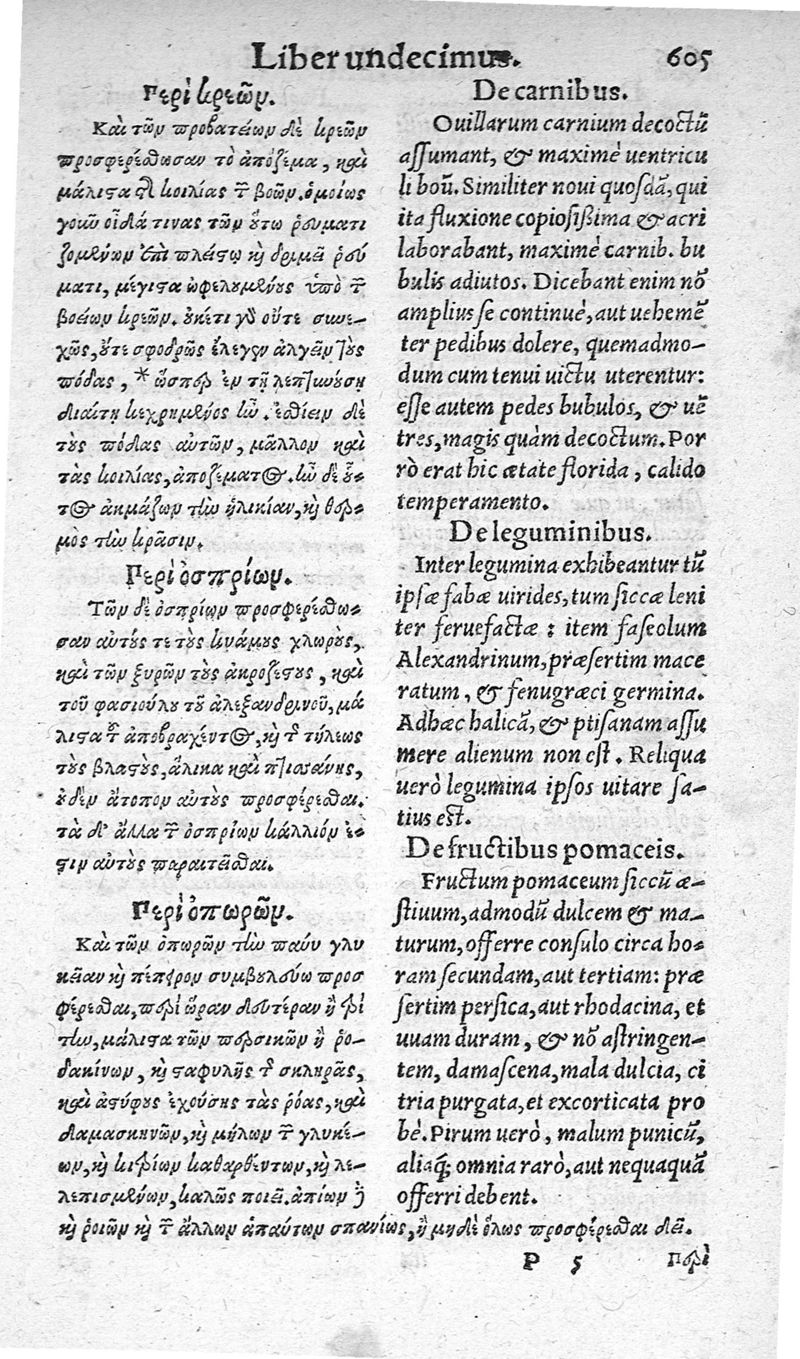 Liber undecimus. 605
Περὶ κρεῶν.
Καὶ τῶν προβατείων δὲ κρεῶν
προσφερέσθωσαν τὸ ἀπόζεμα, καὶ
μάλιστα δὲ κοιλίας τῶν βοῶν. ὁμοίως
γοῦν οἶδά τινας τῶν οὕτω ῥευματι
ζομένων ἐπὶ πλείστῳ καὶ δριμεῖ ῥεύ
ματι, μέγιστα ὠφελουμένους ὑπὸ τῶν
βοείων κρεῶν. οὐκέτι γὰρ οὔτε συνε-
χῶς, οὔτε σφοδρῶς ἔλεγον ἀλγεῖν τοὺς
πόδας, * ὥσπερ ἐν τῇ λεπτυνούσῃ
διαίτῃ κεχρημένος ἦν. ἐσθίειν δὲ
τοὺς πόδας αὐτῶν, μᾶλλον καὶ
τὰς κοιλίας, ἀποζέματος. ἦν δὲ οὗ-
τος ἀκμάζων τὴν ἡλικίαν, καὶ θερ-
μὸς τὴν κρᾶσιν.
Περὶ ὀσπρίων.
Τῶν δὲ ὀσπρίων προσφερέσθω-
σαν αὐτούς τε τοὺς κυάμους χλωροὺς,
καὶ τῶν ξυρῶν τοὺς ἀκροζέστους, καὶ
τοῦ φασιούλου τοῦ ἀλεξανδρινοῦ, μά
λιστα τοῦ ἀποβραχέντος, καὶ τοῦ τήλεως
τοὺς βλαστοὺς, ἄλικα καὶ πτισσάνης,
οὐδὲν ἄτοπον αὐτοὺς προσφέρεσθαι.
τὰ δ' ἄλλα τῶν ὀσπρίων κάλλιόν ἐ-
στιν αὐτοὺς παραιτεῖσθαι.
Περὶ ὀπωρῶν.
Καὶ τῶν ὀπωρῶν τὴν πάνυ γλυ
κεῖαν καὶ πέπειρον συμβουλεύω προσ
φέρεσθαι, περὶ ὥραν δευτέραν ἢ τρί
την, μάλιστα τῶν περσικῶν ἢ ῥο-
δακίνων, καὶ σταφυλῆς τῆς σκληρᾶς,
καὶ ἀστύφους ἐχούσης τὰς ῥόας, καὶ
δαμασκηνῶν, καὶ μήλων τῶν γλυκέ-
ων, καὶ κιτρίων καθαρθέντων, καὶ λε-
λεπισμένων, καλῶς ποιεῖ. ἀπίων δὲ
καὶ ῥοιῶν καὶ τῶν ἄλλων ἁπάντων σπανίως, ἢ μηδὲ ὅλως προσφέρεσθαι δεῖ.
De carnibus.
Ouillarum carnium decoctũ
assumant, & maximè uentricu
li boũ. Similiter noui quosdã, qui
ita fluxione copiosißima & acri
laborabant, maximè carnib. bu
bulis adiutos. Dicebant enim nõ
amplius se continuè, aut uehemẽ
ter pedibus dolere, quemadmo-
dum cum tenui uictu uterentur:
esse autem pedes bubulos, & uẽ
tres, magis quàm decoctum. Por
rò erat hic ætate florida, calido
temperamento.
De leguminibus.
Inter legumina exhibeantur tũ
ipsæ fabæ uirides, tum siccæ leni
ter feruefactæ: item faseolum
Alexandrinum, præsertim mace
ratum, & fenugræci germina.
Adhæc halicã, & ptisanam assu
mere alienum non est. Reliqua
uerò legumina ipsos uitare sa-
tius est.
De fructibus pomaceis.
Fructum pomaceum siccũ æ-
stiuum, admodũ dulcem & ma-
turum, offerre consulo circa ho-
ram secundam, aut tertiam: præ
sertim persica, aut rhodacina, et
uuam duram, & nõ astringen-
tem, damascena, mala dulcia, ci
tria purgata, et excorticata pro
bè. Pirum uerò, malum punicũ,
aliaq; omnia rarò, aut nequaquã
offerri debent.
P 5 Περὶ